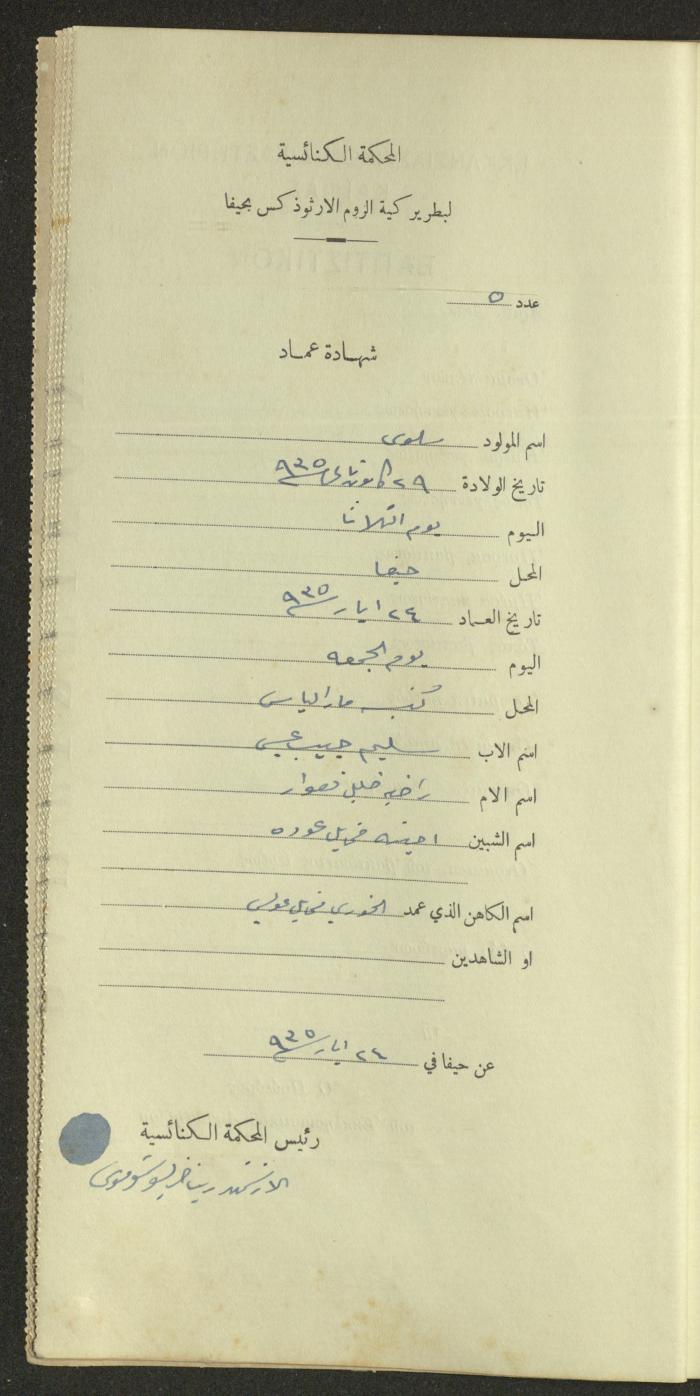 المحكمة الكنائسية
لبطريركية الروم الارثوذكس بحيفا
عدد ٥
شهادة عماد
اسم المولود سلوى
تاريخ الولادة ٢٩ كانون ثاني ٩٣٥
اليوم يوم الثلاثا
المحل حيفا
تاريخ العماد ٢٤ ايار ٩٣٥
اليوم يوم الجمعه
المحل كنيسة مار الياس
اسم الاب سليم حبيب عيسى
اسم الام راضيه خليل قعوار
اسم الشبين امينه مخايل عوده
اسم الكاهن الذي عمد الخوري مخايل
او الشاهدين
عن حيفا في ٢٤ ايار ٩٣٥
رئيس المحكمة الكنائسية
الارشمندريت